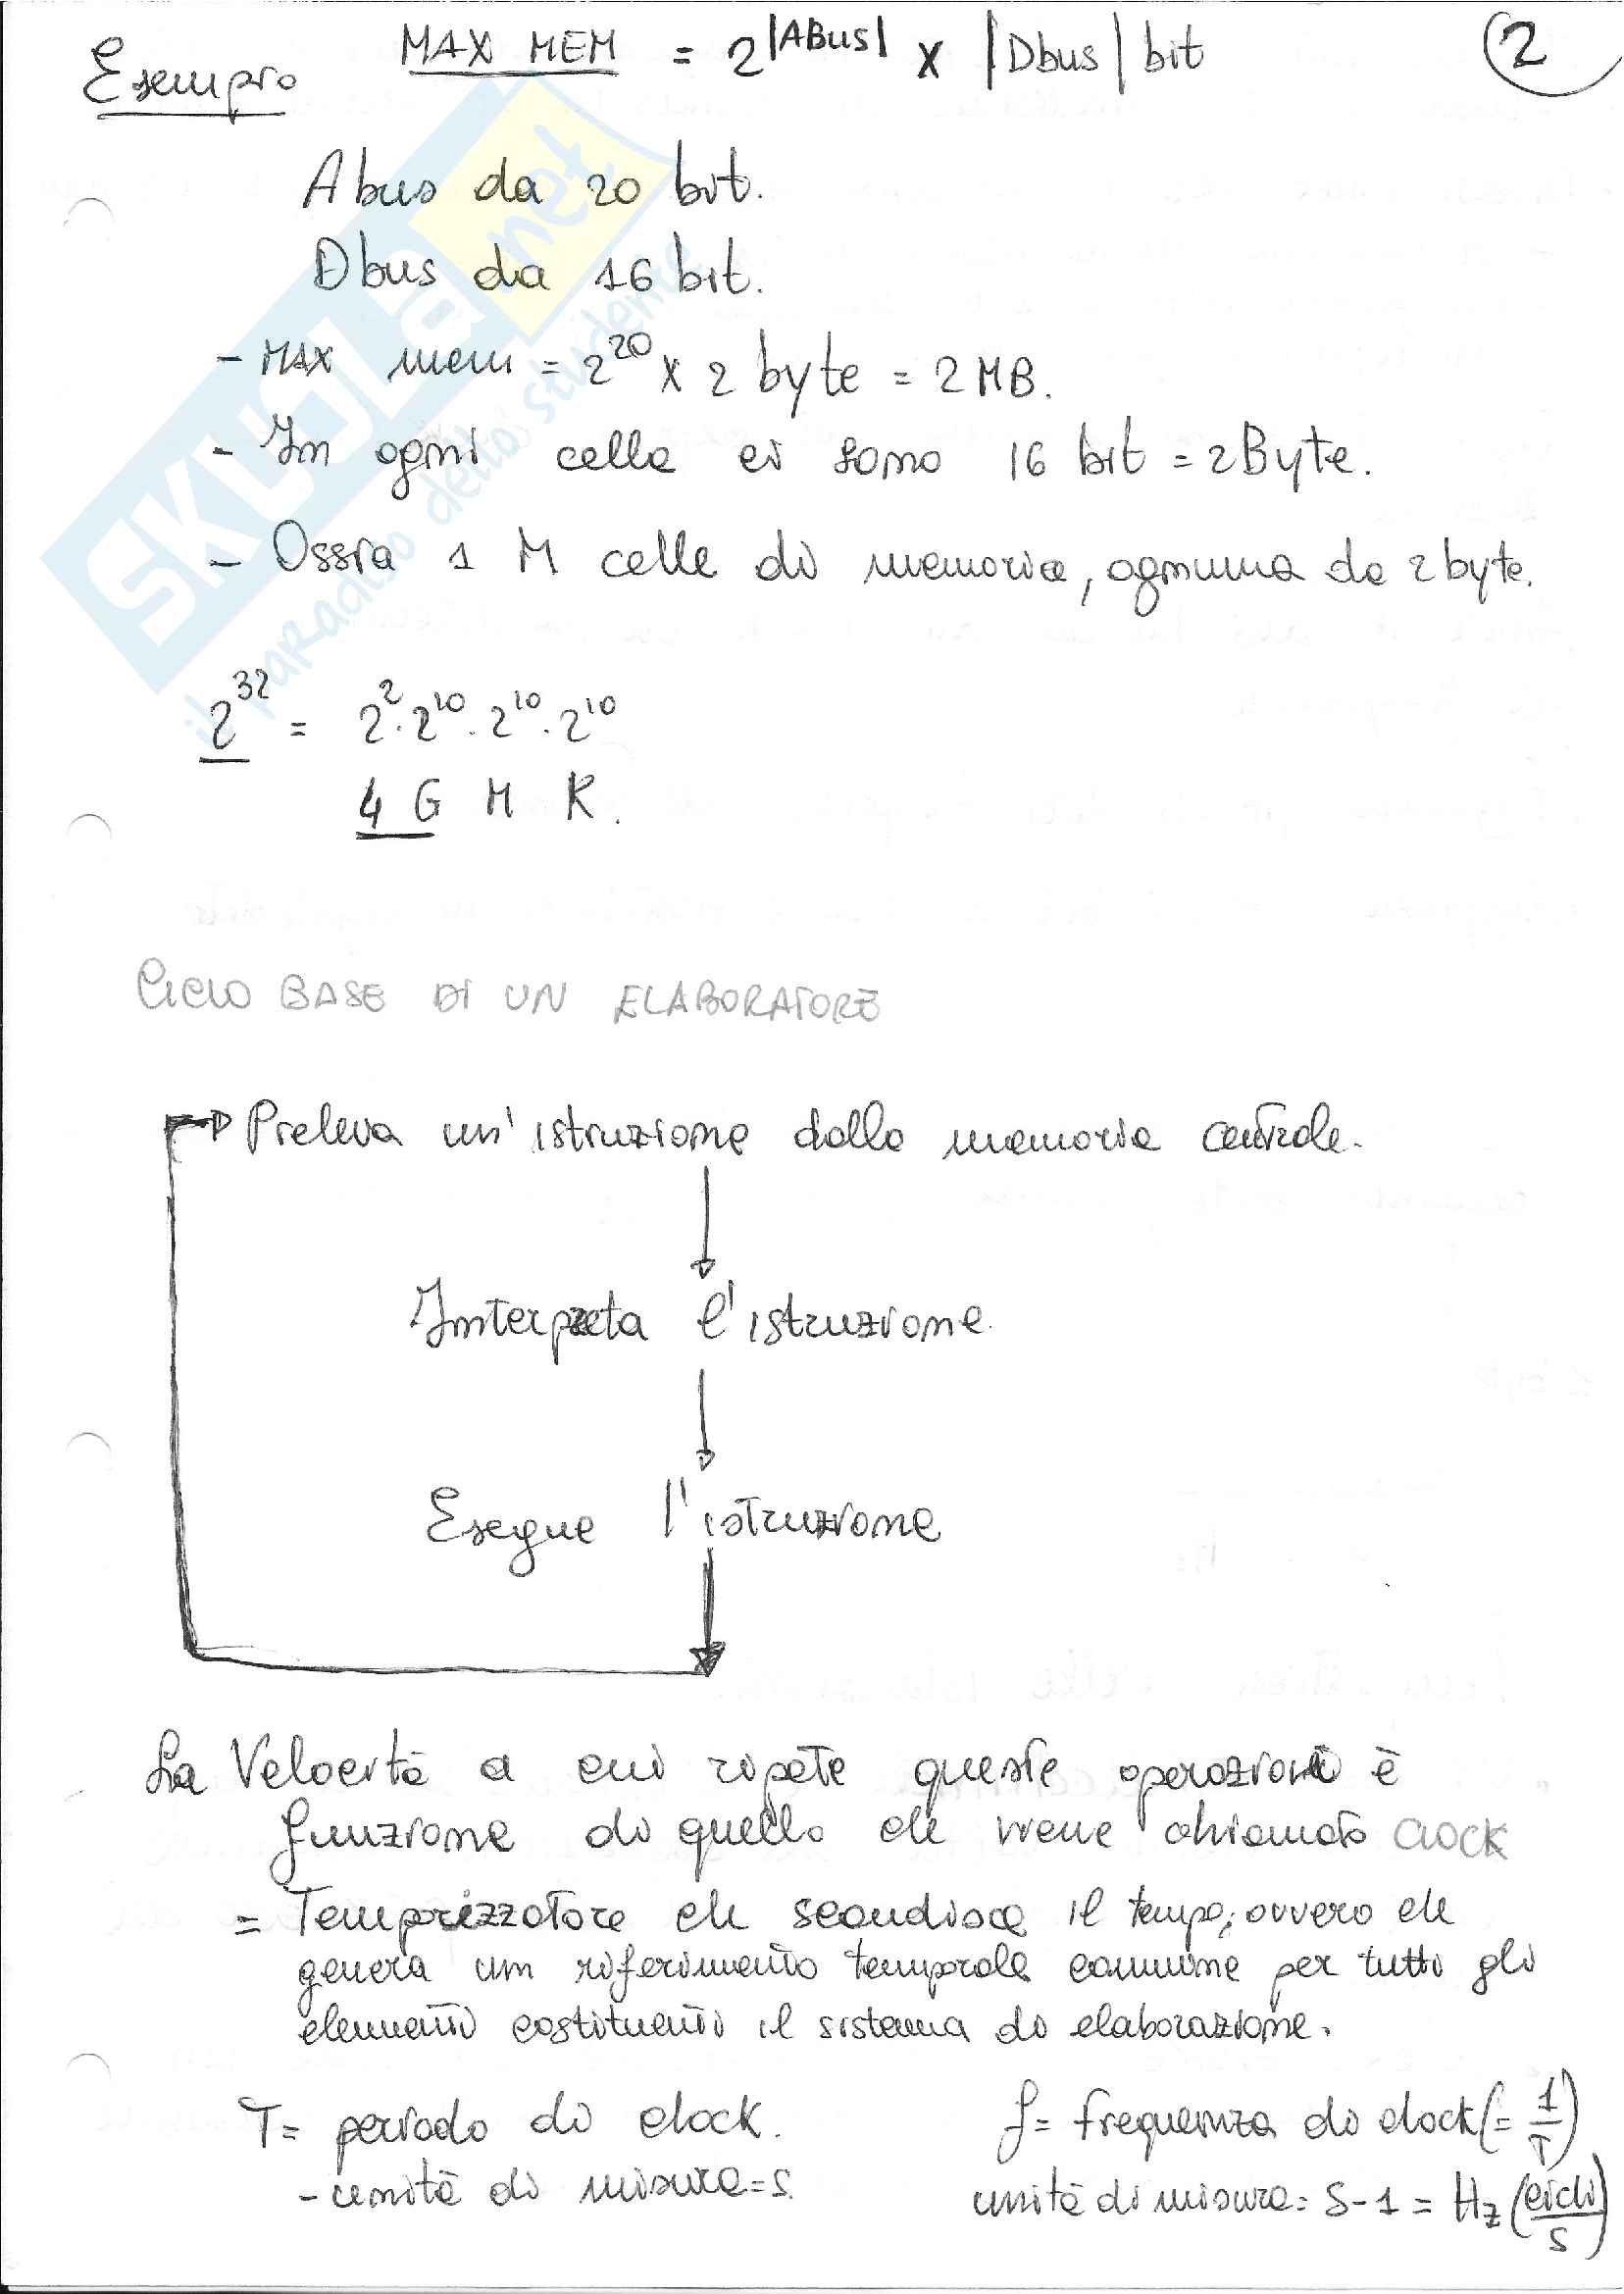 Esempio MAX MEM = 2^|ABus| x |Dbus| bit 2
Abus da 20 bit.
Dbus da 16 bit.
- MAX mem = 2^20 x 2 byte = 2 MB.
- In ogni cella ci sono 16 bit = 2Byte.
- Ossia 1 M celle di memoria, ognuna da 2 byte.
2^32 = 2^2 · 2^10 · 2^10 · 2^10
4 G M K.
CICLO BASE DI UN ELABORATORE
Preleva un'istruzione dalla memoria centrale.
Interpreta l'istruzione.
Esegue l'istruzione
La Velocità a cui ripete queste operazioni è
funzione di quello che viene chiamato CLOCK
= Temporizzatore che scandisce il tempo; ovvero che
genera un riferimento temporale comune per tutti gli
elementi costituenti il sistema di elaborazione.
T = periodo di clock. f = frequenza di clock (= 1/T)
- unità di misura = s. unità di misura = S-1 = Hz (cicli/s)
SKUOLA.net
il paradiso dello studente